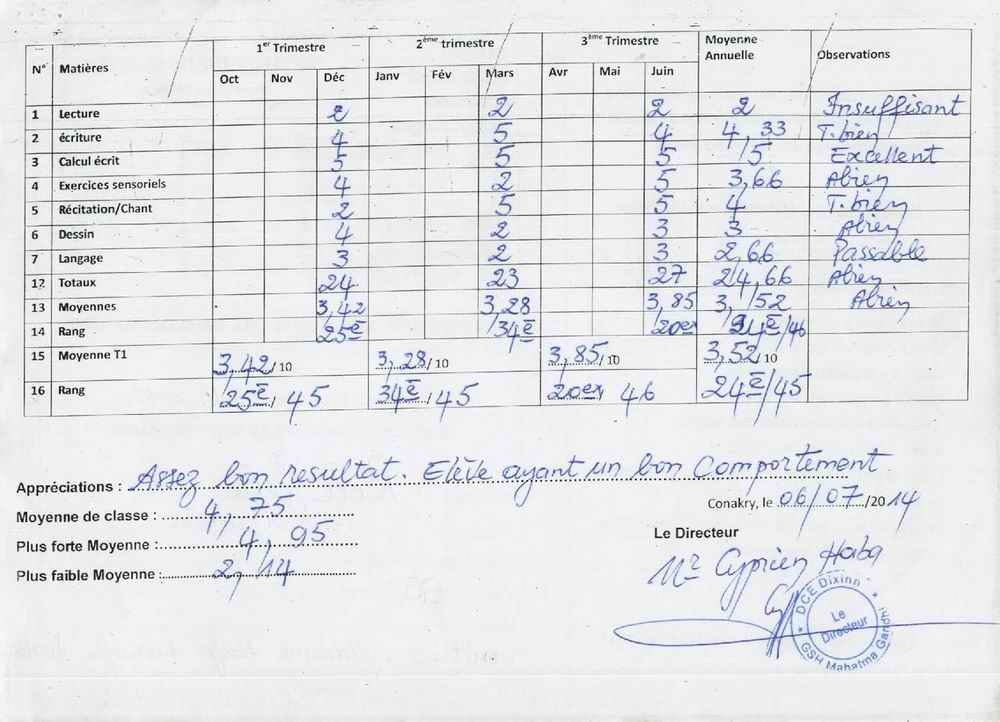 N° Matières 1er Trimestre 2ème trimestre 3ème Trimestre Moyenne Annuelle Observations
Oct Nov Déc Janv Fév Mars Avr Mai Juin
1 Lecture 2 2 2 2 Insuffisant
2 écriture 4 5 4 4,33 T.bien
3 Calcul écrit 5 5 5 5 Excellent
4 Exercices sensoriels 4 2 5 3,66 Abien
5 Récitation/Chant 2 5 5 4 T.bien
6 Dessin 4 2 3 3 Abien
7 Langage 3 2 3 2,66 Passable
12 Totaux 24 23 27 24,66 Abien
13 Moyennes 3,42 3,28 3,85 3,52 Abien
14 Rang 25è 34è 20ex 24è/46
15 Moyenne T1 3,42/10 3,28/10 3,85/10 3,52/10
16 Rang 25è/45 34è/45 20ex/46 24è/45
Appréciations : Assez bon resultat. Elève ayant un bon Comportement
Moyenne de classe : 4,75
Conakry, le 06/07/2014
Plus forte Moyenne : 4,95
Le Directeur
Plus faible Moyenne : 2,14
Mr Cyprien Haba
DCE Dixinn
Le Directeur
GSH Mahatma Gandhi